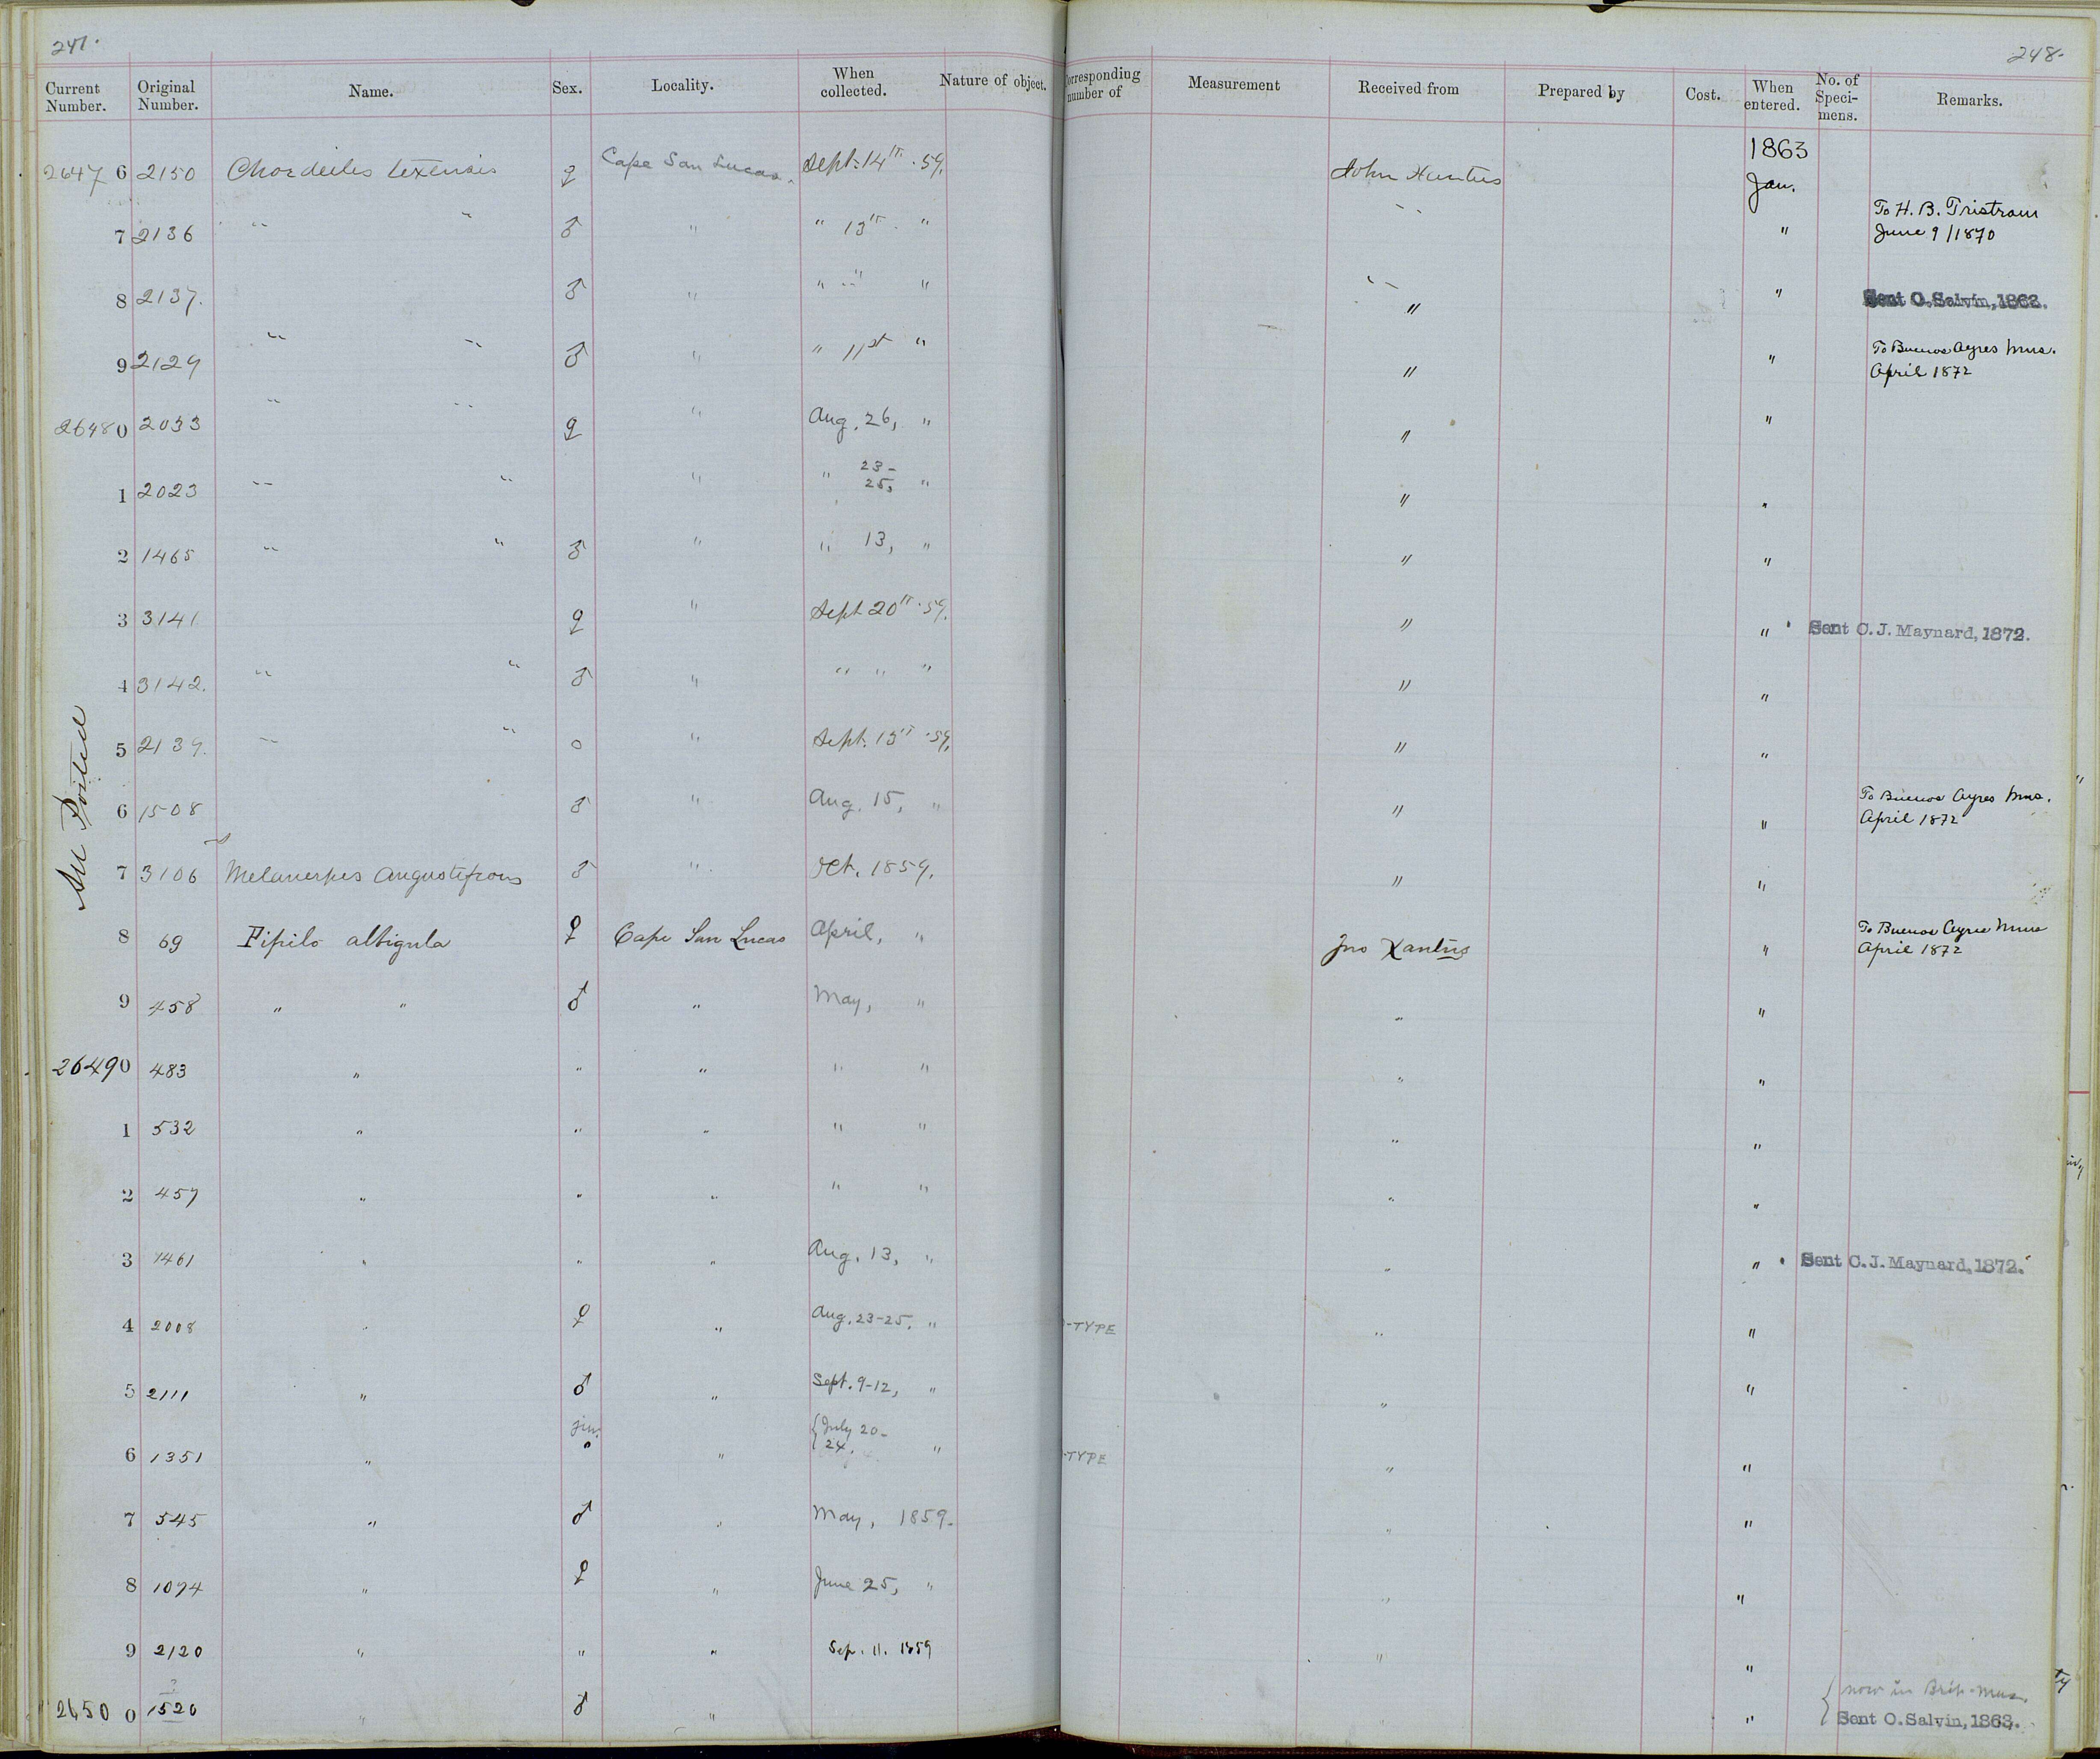 247.
248.
Current Number. Original Number. Name. Sex. Locality. When collected. Nature of object. Corresponding number of Measurement Received from Prepared by Cost. When entered. No. of Specimens. Remarks.
26476 2150 Chordeiles texensis ♀ Cape San Lucas. Sept. 14th .59. John Xantus 1863 Jan.
7 2136 " " ♂ " " 13th " " " To H. B. Tristram June 9/1870
8 2137. ♂ " " " " " " Sent O. Salvin, 1863.
9 2129 " " ♂ " " 11st " " " To Buenos Ayres Mus. April 1872
26480 2033 " " ♀ " Aug. 26, " " "
1 2023 " " " " 23-25, " " "
2 1465 " " ♂ " " 13, " " "
3 3141 ♀ " Sept 20th .59. " " Sent C. J. Maynard, 1872.
4 3142. " " ♂ " " " " " "
5 2139. " " o " Sept. 13th .59. " "
6 1508 ♂ " Aug. 15, " " " To Buenos Ayres Mus. April 1872
7 3106 Melanerpes angustifrons ♂ " Oct. 1859. " "
8 69 Pipilo albigula ♀ Cape San Lucas April, " Jno Xantus " To Buenos Ayres Mus April 1872
9 458 " " ♂ " May, " " "
26490 483 " " " " " " "
1 532 " " " " " " "
2 457 " " " " " " "
3 1461 " " " Aug. 13, " " " Sent C. J. Maynard, 1872.
4 2008 " ♀ " Aug. 23-25, " -TYPE " "
5 2111 " ♂ " Sept. 9-12, " " "
6 1351 " juv. o " { July 20-24, " -TYPE " "
7 545 " ♂ " May, 1859. " "
8 1094 " ♀ " June 25, " " "
9 2120 " " " Sep. 11. 1859 " "
26500 1520 ? " ♂ " " { now in Brit. Mus. Sent O. Salvin, 1863.
All Posted